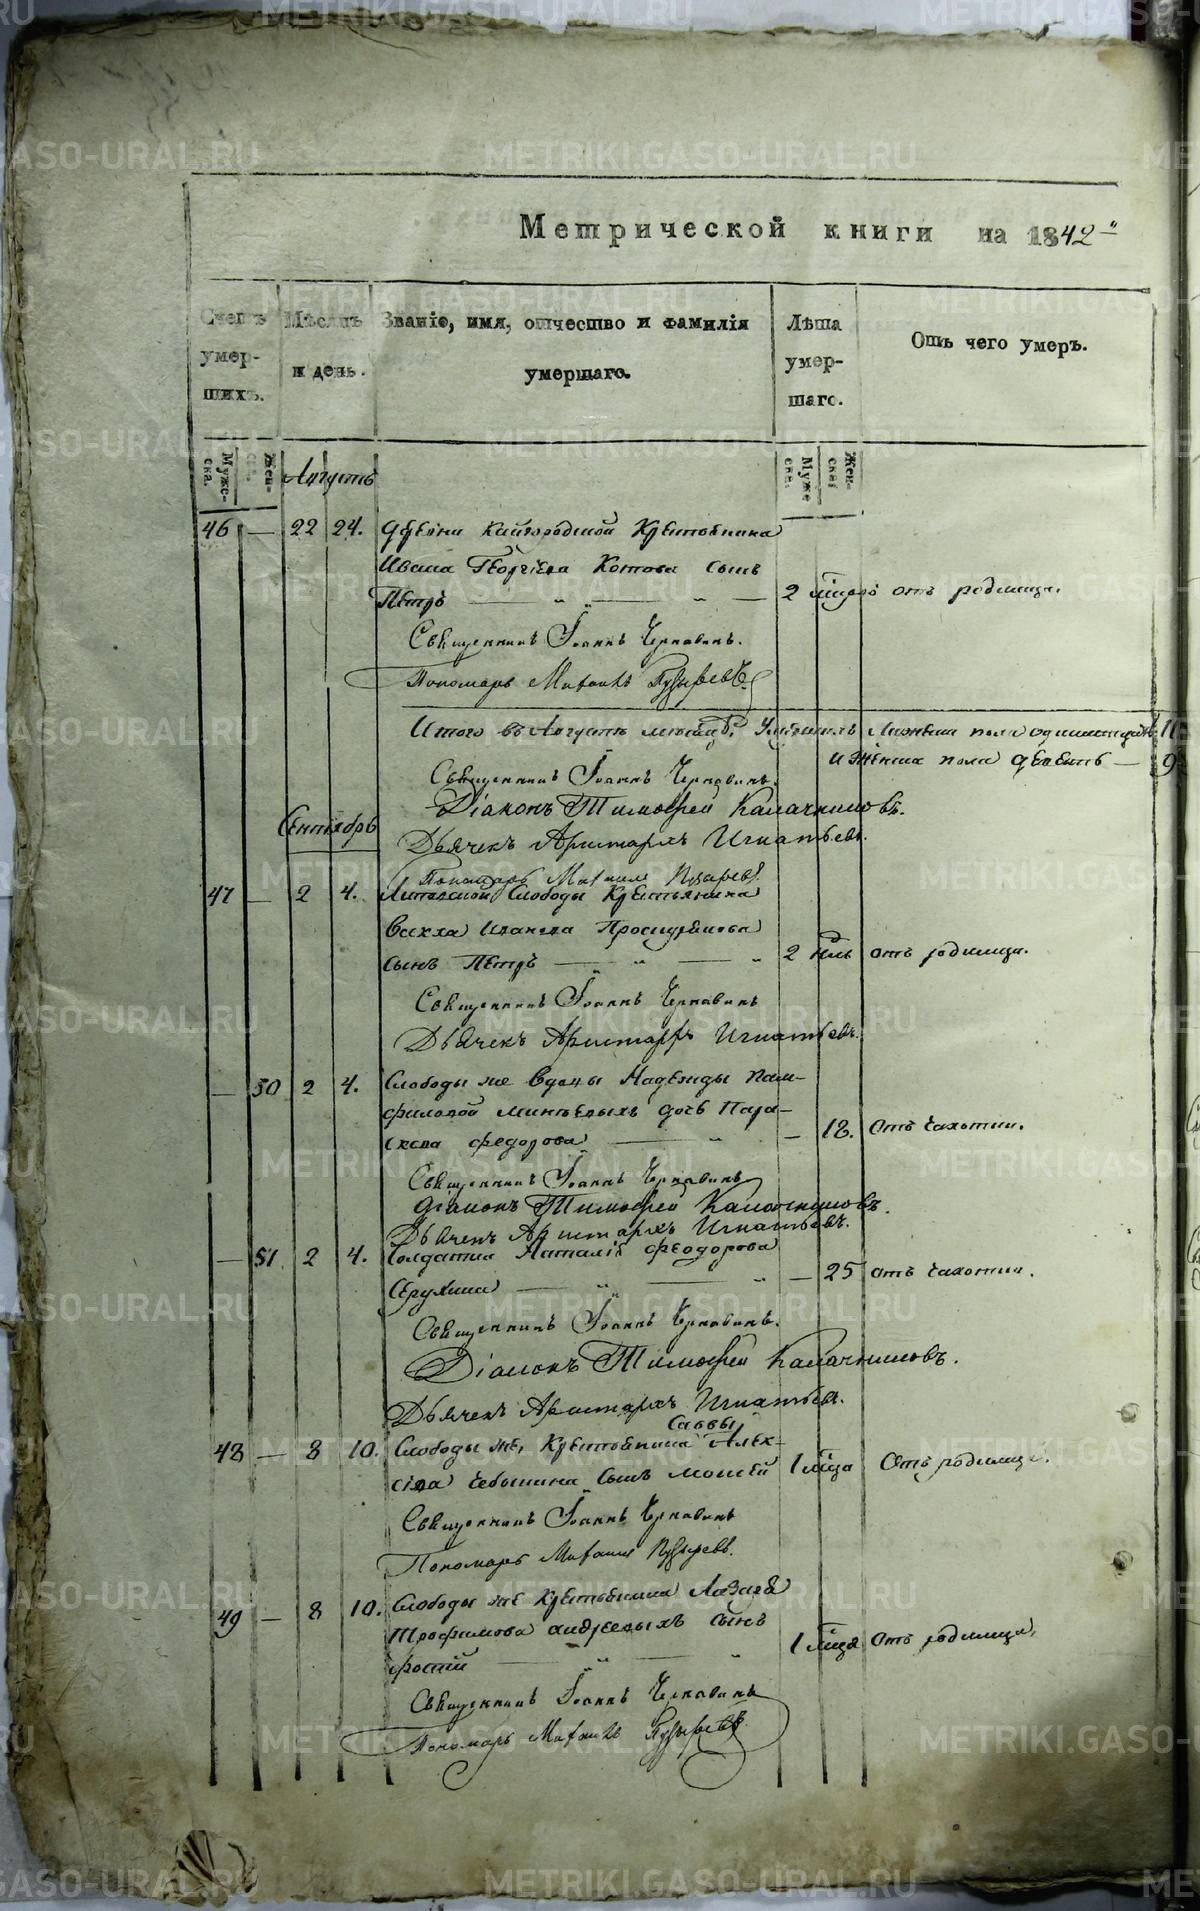 Метрической книги на 1842
Счетъ умершихъ. Мѣсяцъ и день. Званіе, имя, отчество и фамилія умершаго. Лѣта умершаго. Отъ чего умеръ.
Мужеска. Женска. Мужеска. Женска.
Августъ
46 — 22 24. Деревни Кайгородской Крестьянина
Ивана Георгіева Котова сынъ
Петръ — 2 отъ родимца.
Священникъ Іоаннъ Чернавинъ.
Пономарь Михаилъ Пузыревъ
Итого въ Августѣ мѣсяцѣ Мужеска пола одиннадцать 11
и Женска пола девять — 9
Священникъ Іоаннъ Чернавинъ.
Діаконъ Тимофей Калачниковъ.
Дьячекъ Аристархъ Игнатьевъ.
Сентябрь
Пономарь Михаилъ Пузыревъ
47 — 2 4. Слободы Крестьянина
Ивана Проскурякова
сынъ Петръ — 2 ндль отъ родимца.
Священникъ Іоаннъ Чернавинъ
Дьячекъ Аристархъ Игнатьевъ.
— 50 2 4. Слободы же вдовы Надежды Пам-
филовой дочь Пара-
скева Федорова — 18. отъ чахотки.
Священникъ Іоаннъ Чернавинъ
Діаконъ Тимофей Калачниковъ.
Дьячекъ Аристархъ Игнатьевъ.
— 51 2 4. Солдатка Наталія Феодорова
— 25 отъ чахотки.
Священникъ Іоаннъ Чернавинъ.
Діаконъ Тимофей Калачниковъ.
Дьячекъ Аристархъ Игнатьевъ.
Саввы
48 — 8 10. Слободы же, Крестьянина Алек-
сіева Чебыкина сынъ Моисей 1 мца Отъ родимца.
Священникъ Іоаннъ Чернавинъ
Пономарь Михаилъ Пузыревъ.
49 — 8 10. Слободы же Крестьянина Лазаря
Трофимова Андреевыхъ сынъ
1 мца отъ родимца.
Священникъ Іоаннъ Чернавинъ
Пономарь Михаилъ Пузыревъ
METRIKI.GASO-URAL.RU